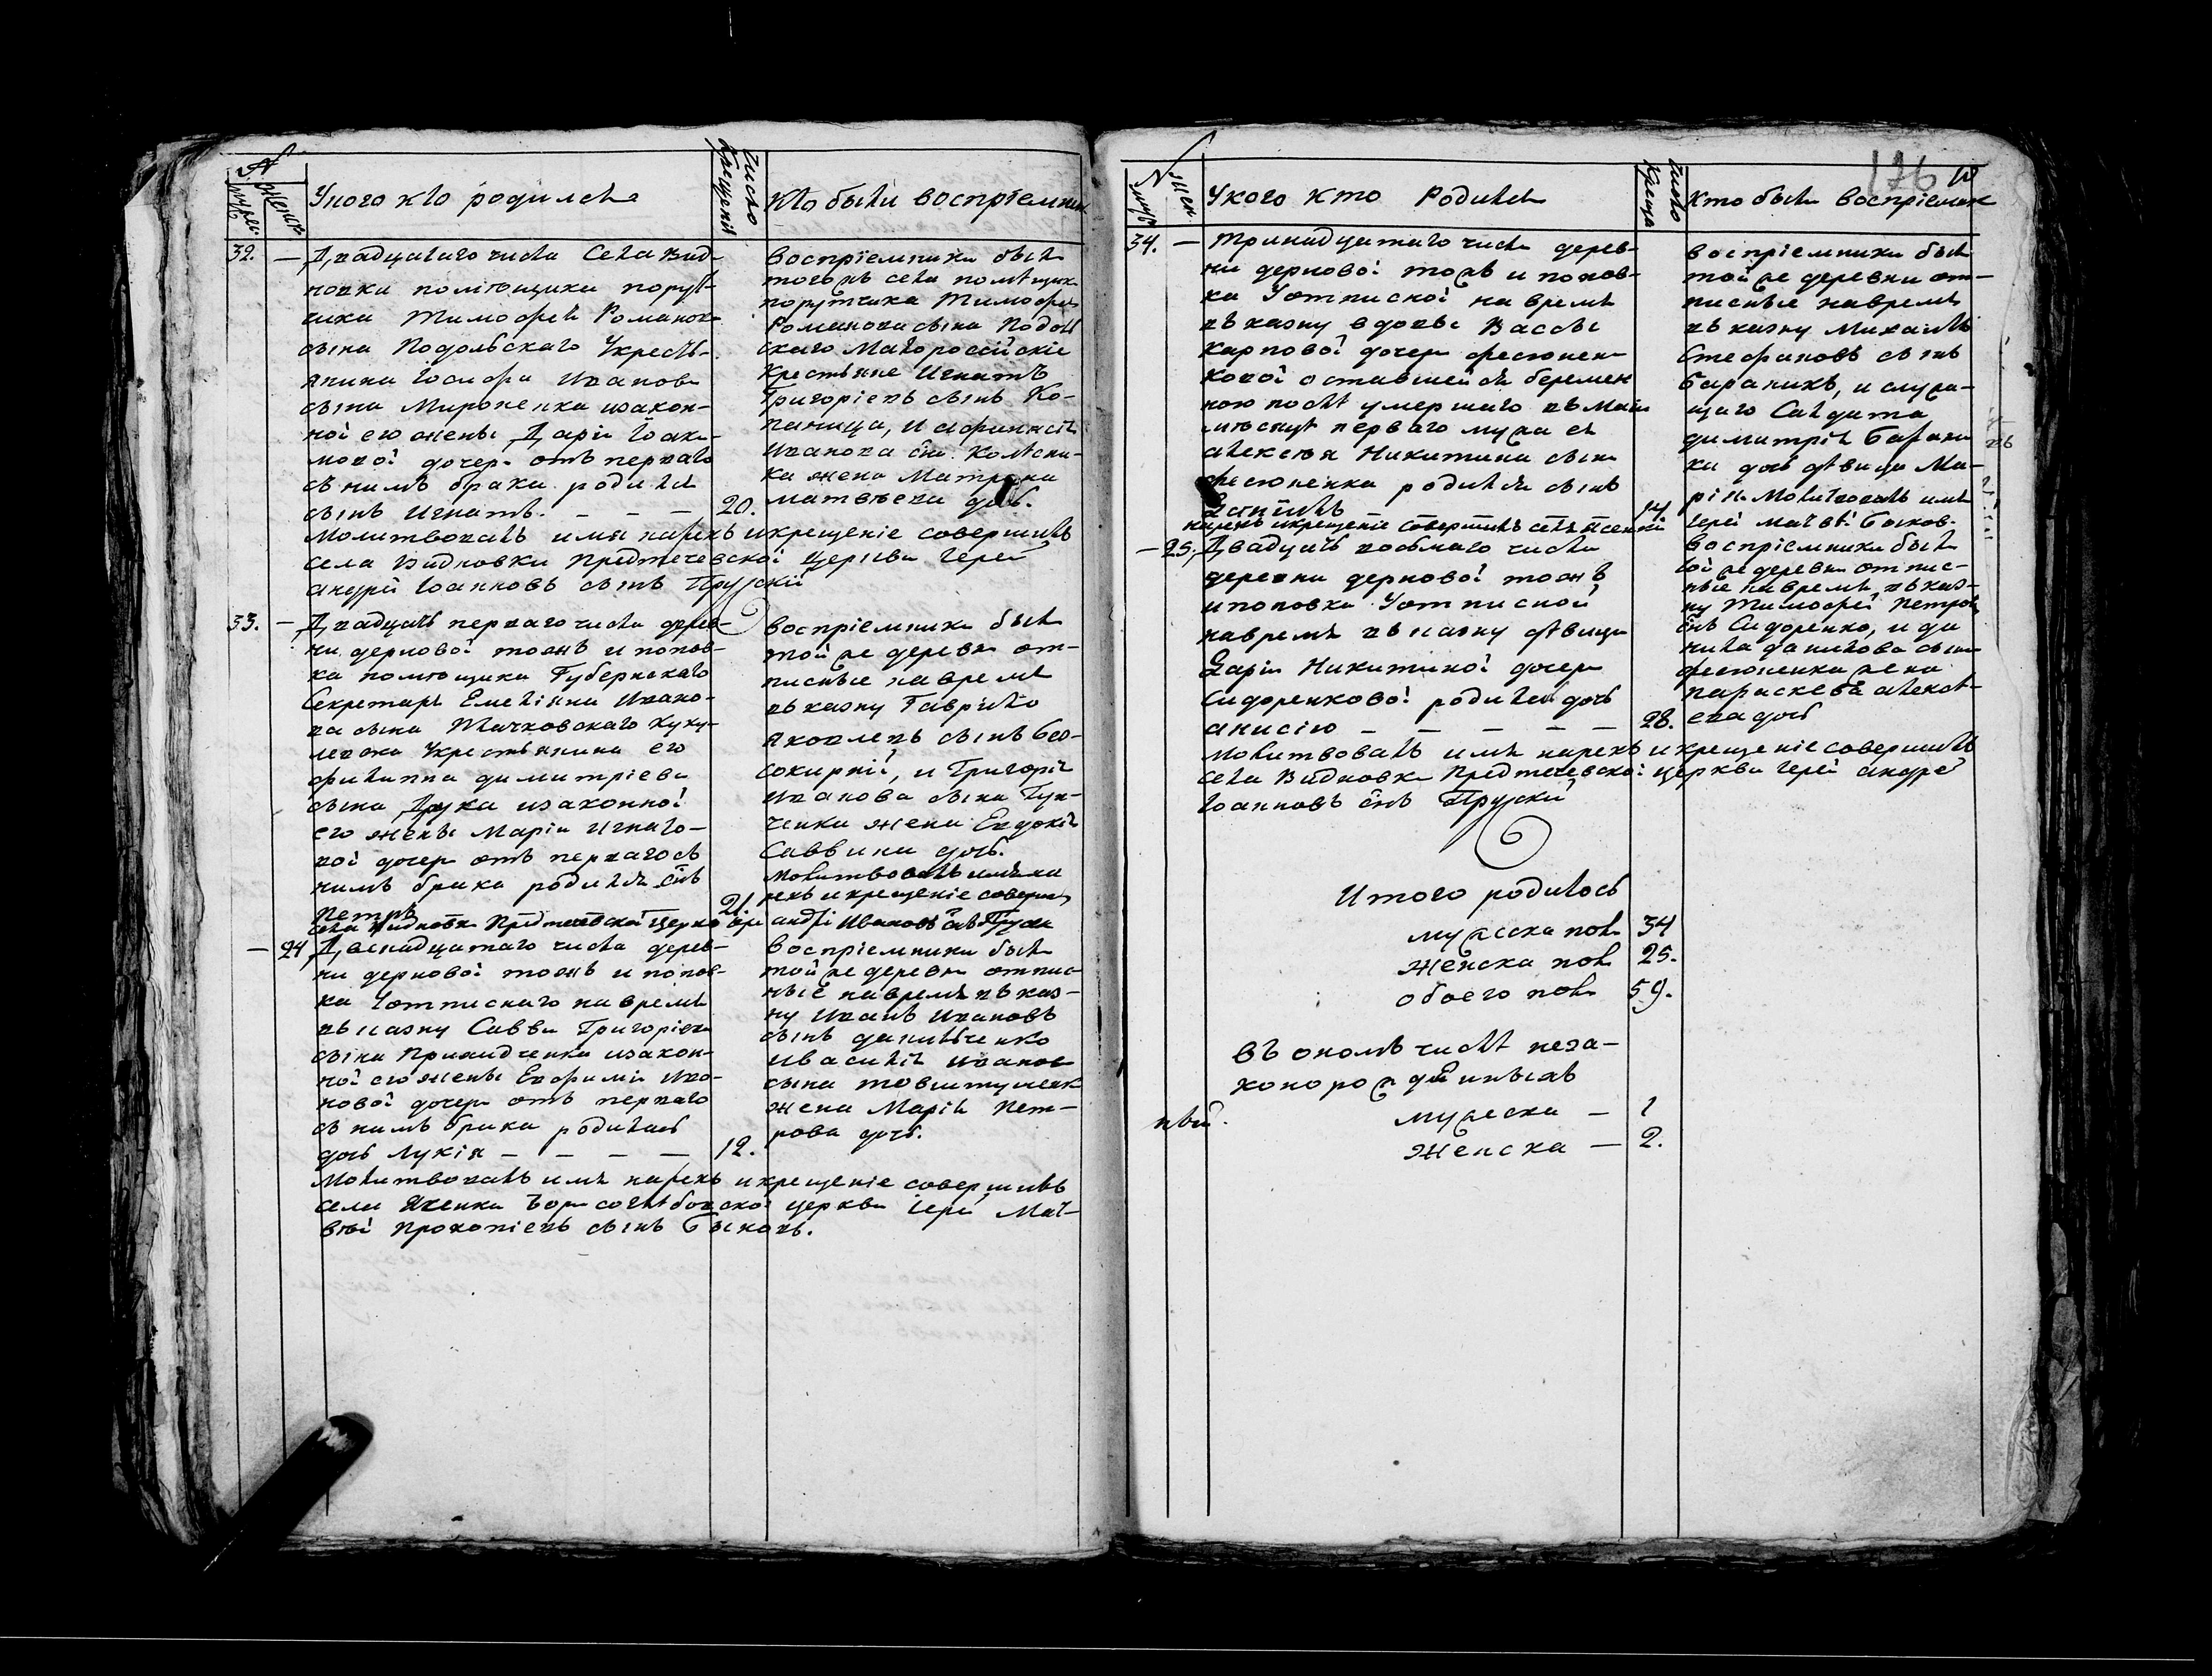 №
мужес.
Женск.
У кого кто родился
Число Крещенія
Кто были воспріемники
32. — Двадцатаго числа Села Вид-
новки помѣщика поруд-
чика Тимофея Романова
сына Подольскаго У крестъ-
янина Іосифа Иванова
сына Мироненка изакон-
ної его жены Даріи Іоаки-
мовоі дочери отъ перваго
съ нимъ брака родился
сынъ Игнатъ. — — — 20.
воспріемники были
тогожъ села помѣщика
порутчика Тимофея
Романова сына Подоль
скаго Малороссійскіе
Крестьяне Игнатъ
Григоріевъ сынъ Ко-
паница, и Афанасія
Иванова сна Колѣсни-
ка жена Матрона
Матвѣева дочь.
Молитвовалъ имя нарекъ и крещеніе совершилъ
села Видновки Предтечевскоі церкви Іереі
андреі Іоанновъ сынъ Прускій
33. — Двадцать перваго числа дерев-
ни дерновоі тожъ и попов-
ка помѣщика Губернскаго
Секретаря Емеліяна Ивано-
ва сына Ткачковскаго Куку-
левска У крестьянина его
филиппа димитріева
сына Друка изаконноі
его жены Маріи Игнато-
воі дочери отъ перваго съ
нимъ брака родился снъ
Петръ 21.
воспріемники были
тойже деревни от-
писные на время
въ казну Гаврило
Яковлевъ сынъ Бео-
сокирній, и Григорія
Иванова сына Гун-
ченка жена Евдокія
Саввина дочь.
Молитвовалъ имя на
рекъ и крещеніе соверши
села Видновки Предтечевской Церкви Іереі андреі Ивановъ снъ Пруски
— 24 Двенадцатаго числа дерев-
ни дерновоі тожъ и попов-
ка У отписнаго на время
въ казну Саввы Григоріева
сына Принидченка изакон-
ноі его жены Евфиміи Ива-
новоі дочери отъ перваго
съ нимъ брака родилась
дочь Лукія — — — — 12.
воспріемники были
тойже деревни отпис-
ные на время въ каз-
ну Иванъ Ивановъ
сынъ данильченко
и Василія Иванова
сына товштуленк
жена Марія Пет-
рова дочь.
Молитвовалъ имя нарекъ и крещеніе совершилъ
села Яченки Борисоглѣбовскоі церкви Іереі Мат-
вѣі Прокопіевъ сынъ Быковъ.
176
№
муж.
жен.
У кого кто Родился
Число Креще
Кто были воспріемник
34. — Тринадцатаго числа дерев-
ни дерновоі тожъ и попов-
ка У отписноі на время
въ казну вдовы Вассы
Карповоі дочери фесюнен-
ковоі оставшейся беремен
ною послѣ умершаго въ Маіи
мѣсяцѣ перваго мужа ея
алексѣя Никитина сына
фесюненка родился сынъ
14.
воспріемники были
тойже деревни от-
писные на время
въ казну Михаилъ
Стефановъ сынъ
бараникъ, и служа-
щаго Салдата
димитрія барани
ка дочь дѣвица Ма-
рія. Молитвовалъ имя
Іереі Матвѣі Быков.
нарекъ и крещеніе совершилъ села
— 25. Двадцать восьмаго числа
деревни дерновоі тожъ
и поповка У отписной
на время въ казну дѣвицы
Даріи Никитиноі дочери
Сидоренковоі родилась дочь
анисію — — — — — 28.
воспріемники были
тойже деревни отпис-
ные на время въ каз-
ну Тимофей Петров
снъ Сидоренко, и да
нила данилова сына
фесюненка жена
параскева алексѣ-
ева дочь
молитвовалъ имя нарекъ и крещеніе совершилъ
села Видновки Предтечевскоі церкви Іереі андреі
Іоанновъ снъ Прускій
Итого родилось
мужеска пола 34
женска пола 25.
обоего пола 59.
въ ономъ числѣ неза-
конорожденныхъ
мужеска — 1
женска — 2.